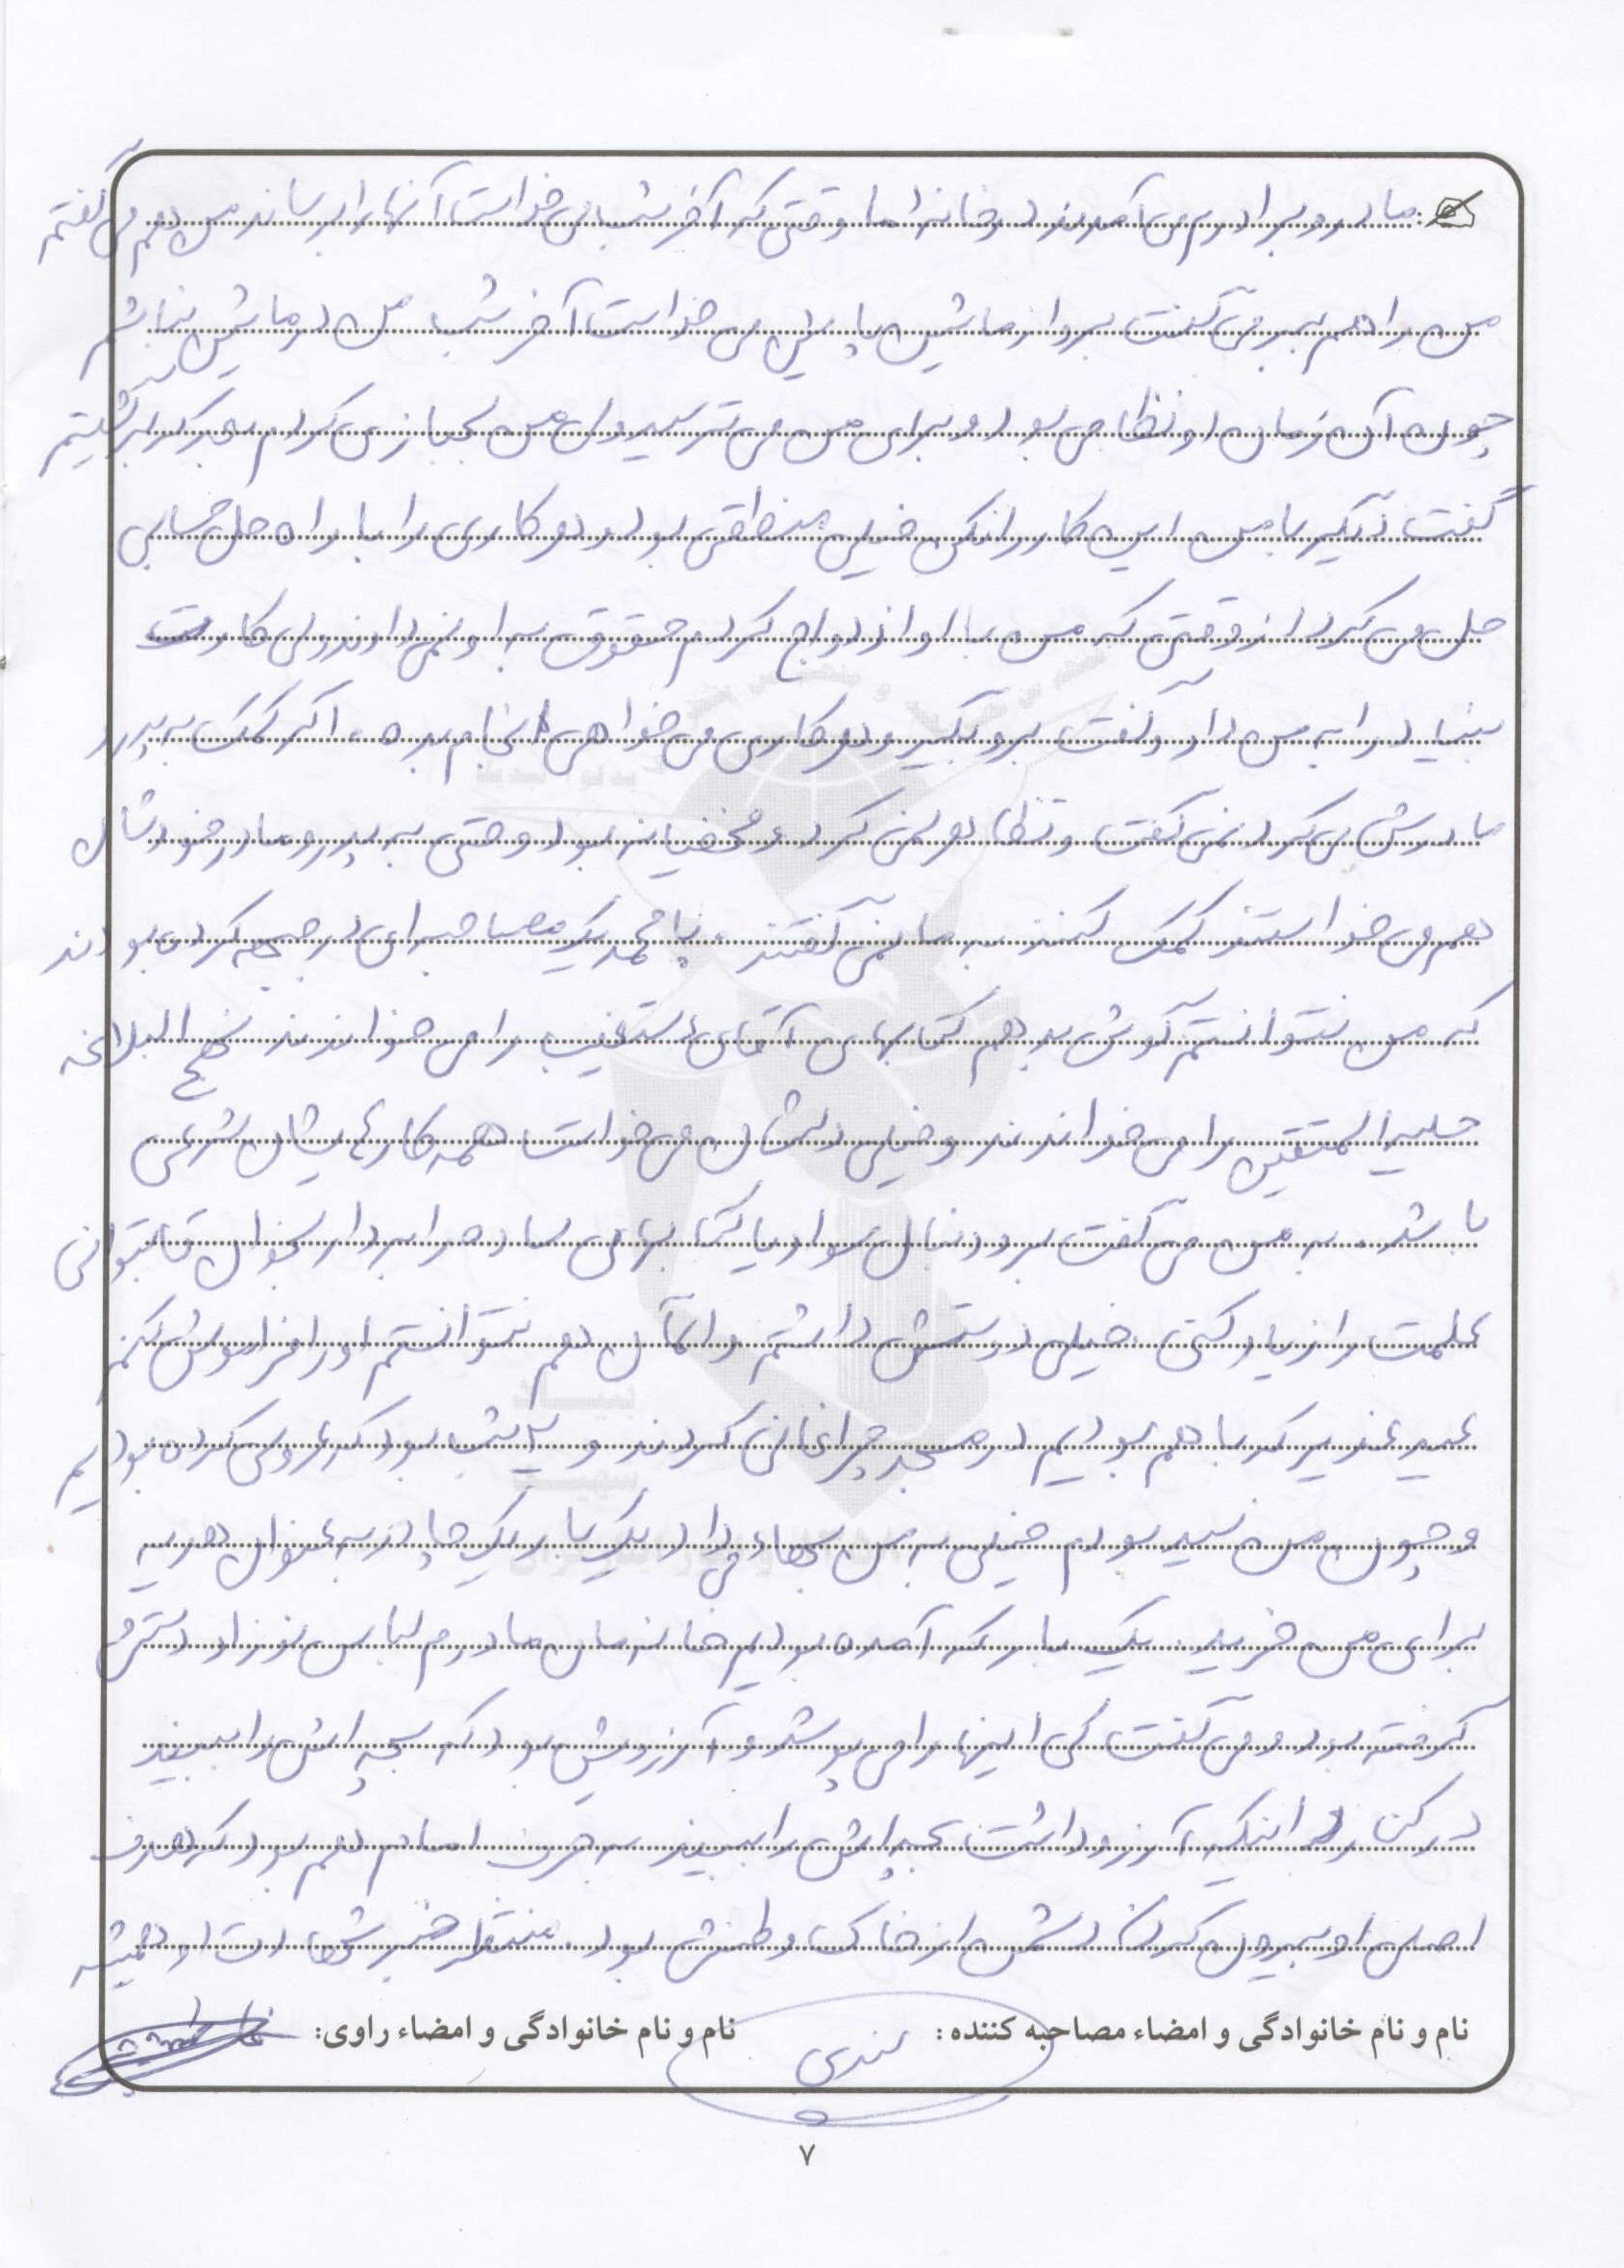 مادر و برادرم می آمدند در خانه اما وقتی که آخر شب می خواست آنها را برساند من هم می گفتم
من را هم ببر می گفت برو از ماشین پایین می خواست آخر شب من در ماشین نباشم
چون آن زمان او نظامی بود و برای من می ترسید ولی من لجبازی می کردم بعد که برگشتیم
گفت دیگر با من این کار را نکن خیلی منطقی بود و هر کاری را با راه حل حسابی
حل می کرد از وقتی که من با او ازدواج کردم حقوق به او نمی دادند ولی کارت
بنیاد را به من داد و گفت برو بگیر و هر کاری می خواهی انجام بده، اگر کمک به پدر
مادرش می کرد نمی گفت و تظاهر نمی کرد و مخفیانه بود و حتی به پدر و مادر خودشان
هم می خواستند کمک کنند به ما نمی گفتند. با محمد یک مصاحبه ای در جبهه کرده بودند
که من نتوانستم گوش بدهم کتابهای آقای دستغیب را می خواندند نهج البلاغه
حلیه المتقین را می خواندند و خیلی دلشان می خواست همه کارهایشان شرعی
باشد. به من می گفت برو دنبال سواد یا کتابهای ساده را بردار بخوان تا بتوانی
علمت را زیاد کنی. خیلی دوستش داشتم و الان هم نتوانستم او را فراموش کنم
عید غدیر که با هم بودیم در مسجد چراغانی کردند و ۲ شب بود که عروسی کرده بودیم
و چون من سید بودم خیلی به من بهاء می داد یک بار یک چادر به عنوان هدیه
برای من خرید. یک بار که آمده بودیم خانه مان مادرم لباس نوزاد دستش
گرفته بود و می گفت کی اینها را می پوشد و آرزویش بود که بچه اش را ببیند
در کنار اینکه آرزو داشت بچه اش را ببیند به حرف امام هم بود که هدف
اصلی او بیرون کردن دشمن از خاک وطنش بود. منتظر خبر شهادت او همیشه
نام و نام خانوادگی و امضاء مصاحبه کننده: نام و نام خانوادگی و امضاء راوی:
۷